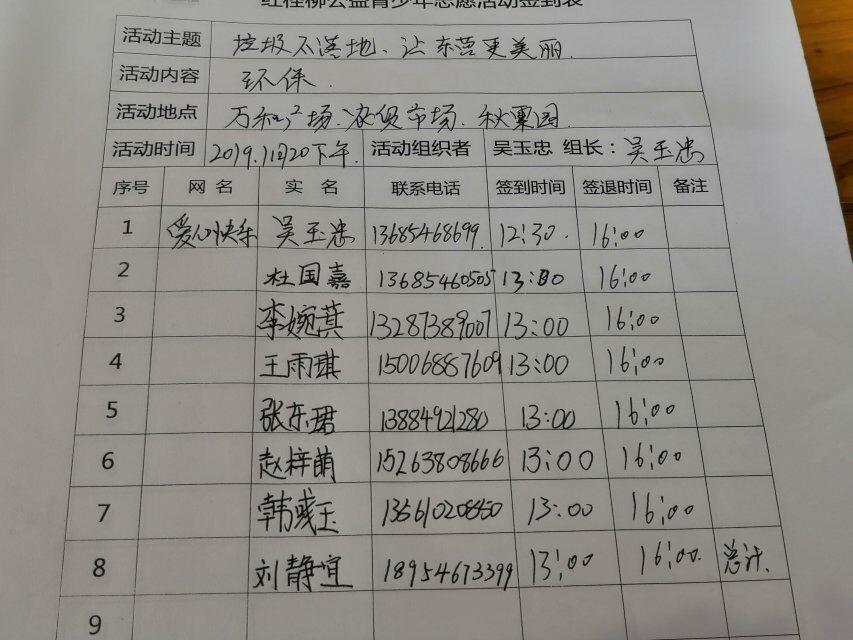 红柽柳公益青少年志愿活动签到表
活动主题 垃圾不落地、让东营更美丽.
活动内容 环保.
活动地点 万和广场.农贸市场.秋粟园.
活动时间 2019.11月20下午. 活动组织者 吴玉忠 组长：吴玉忠
序号 网 名 实 名 联系电话 签到时间 签退时间 备注
1 爱心快乐 吴玉忠 13685468699. 12:30. 16:00
2 杜国嘉 13685460505 13:00 16:00
3 李婉萁 13287389007 13:00 16:00
4 王雨琪 15006887609 13:00 16:00
5 张东珺 13884921280 13:00 16:00
6 赵梓萌 15263808666 13:00 16:00
7 韩彧玉 13561020850 13:00 16:00
8 刘静宜 18954673399 13:00 16:00. 总计.
9